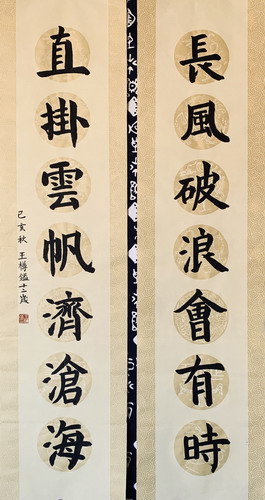 長風破浪會有時
直掛雲帆濟滄海
己亥秋 王樽鎰十二歲